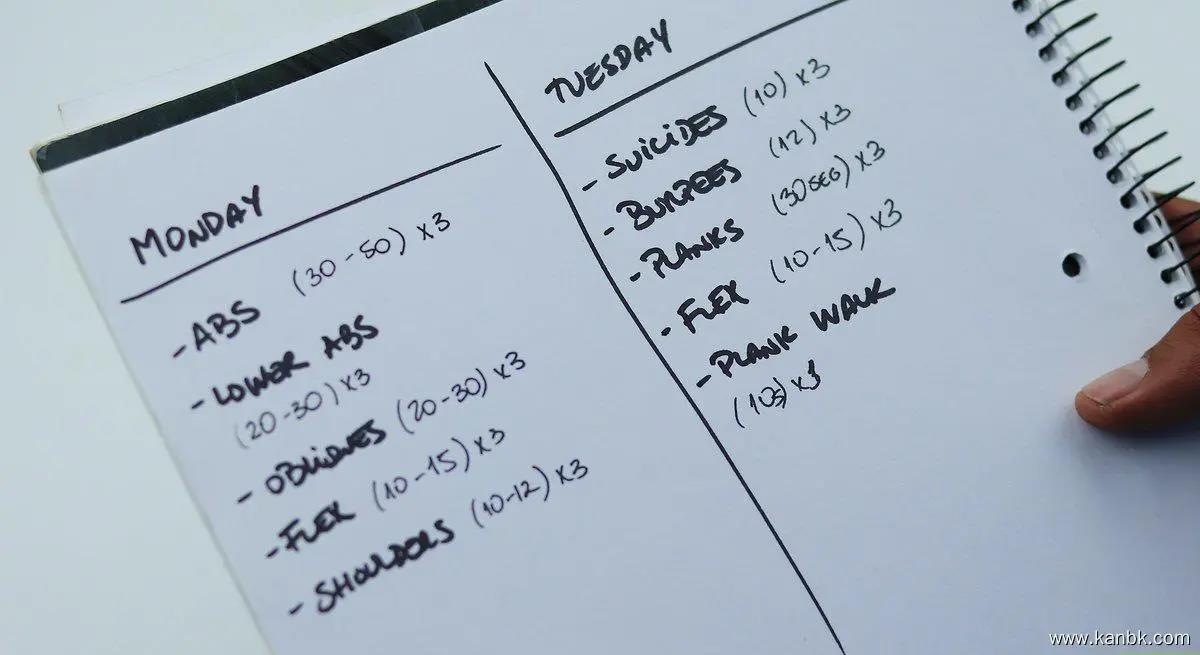 MONDAY
- ABS (30-50) x3
- LOWER ABS
(20-30) x3
- OBLIQUES (20-30) x3
- FLEX (10-15) x3
- SHOULDERS (10-12) x3
TUESDAY
- SUICIDES (10) x3
- BURPEES (12) x3
- PLANKS (30SEG) x3
- FLEX (10-15) x3
- PLANK WALK
(10s) x3
www.kanbk.com